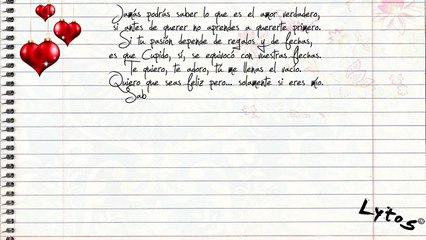 Jamás podrás saber lo que es el amor verdadero,
si antes de querer no aprendes a quererte primero.
Si tu pasión depende de regalos y de fechas,
es que Cupido, sí, se equivocó con vuestras flechas.
Te quiero, te adoro, tú me llenas el vacío.
Quiero que seas feliz pero... solamente si eres mío.
Sab
Lytos©